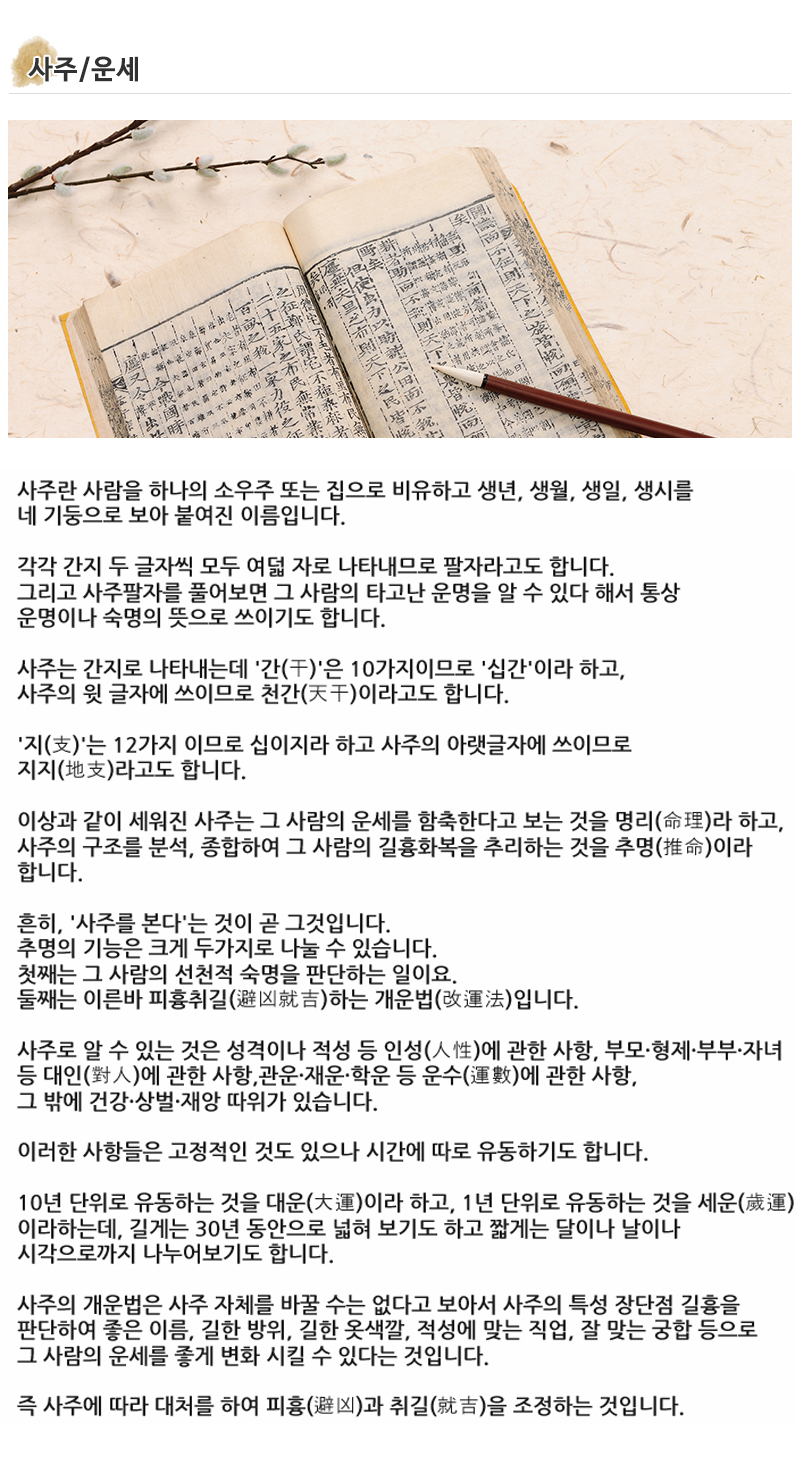 사주/운세
사주란 사람을 하나의 소우주 또는 집으로 비유하고 생년, 생월, 생일, 생시를
네 기둥으로 보아 붙여진 이름입니다.
각각 간지 두 글자씩 모두 여덟 자로 나타내므로 팔자라고도 합니다.
그리고 사주팔자를 풀어보면 그 사람의 타고난 운명을 알 수 있다 해서 통상
운명이나 숙명의 뜻으로 쓰이기도 합니다.
사주는 간지로 나타내는데 '간(干)'은 10가지이므로 '십간'이라 하고,
사주의 윗 글자에 쓰이므로 천간(天干)이라고도 합니다.
'지(支)'는 12가지 이므로 십이지라 하고 사주의 아랫글자에 쓰이므로
지지(地支)라고도 합니다.
이상과 같이 세워진 사주는 그 사람의 운세를 함축한다고 보는 것을 명리(命理)라 하고,
사주의 구조를 분석, 종합하여 그 사람의 길흉화복을 추리하는 것을 추명(推命)이라
합니다.
흔히, '사주를 본다'는 것이 곧 그것입니다.
추명의 기능은 크게 두가지로 나눌 수 있습니다.
첫째는 그 사람의 선천적 숙명을 판단하는 일이요.
둘째는 이른바 피흉취길(避凶就吉)하는 개운법(改運法)입니다.
사주로 알 수 있는 것은 성격이나 적성 등 인성(人性)에 관한 사항, 부모·형제·부부·자녀
등 대인(對人)에 관한 사항,관운·재운·학운 등 운수(運數)에 관한 사항,
그 밖에 건강·상벌·재앙 따위가 있습니다.
이러한 사항들은 고정적인 것도 있으나 시간에 따로 유동하기도 합니다.
10년 단위로 유동하는 것을 대운(大運)이라 하고, 1년 단위로 유동하는 것을 세운(歲運)
이라하는데, 길게는 30년 동안으로 넓혀 보기도 하고 짧게는 달이나 날이나
시각으로까지 나누어보기도 합니다.
사주의 개운법은 사주 자체를 바꿀 수는 없다고 보아서 사주의 특성 장단점 길흉을
판단하여 좋은 이름, 길한 방위, 길한 옷색깔, 적성에 맞는 직업, 잘 맞는 궁합 등으로
그 사람의 운세를 좋게 변화 시킬 수 있다는 것입니다.
즉 사주에 따라 대처를 하여 피흉(避凶)과 취길(就吉)을 조정하는 것입니다.